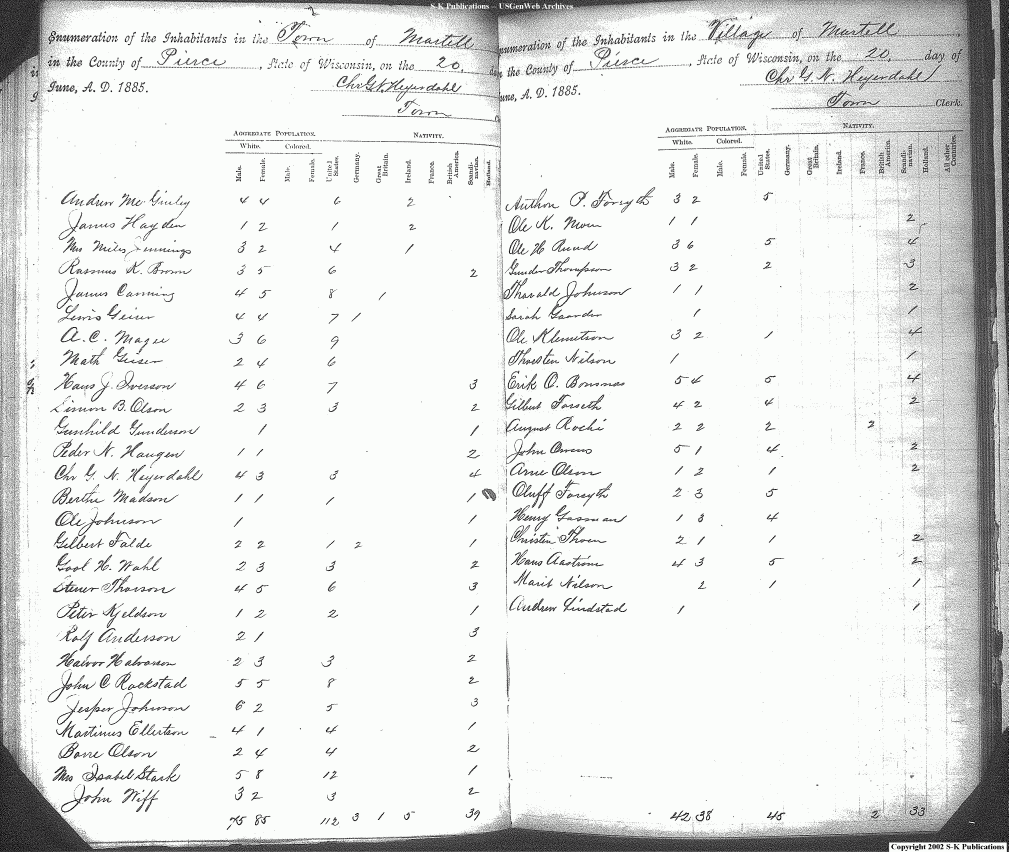 S-K Publications -- USGenWeb Archives
2
Enumeration of the Inhabitants in the Town of Martell
in the County of Pierce, State of Wisconsin, on the 20, day
June, A. D. 1885.
Chr G N Heyerdahl
Town
AGGREGATE POPULATION. NATIVITY.
White. Colored.
Male. Female. Male. Female. United States. Germany. Great Britain. Ireland. France. British America. Scandinavian. Holland.
Andrew McGinley 4 4 6 2
James Hayden 1 2 1 2
Mrs Miles Jennings 3 2 4 1
Rasmus K. Brown 3 5 6 2
James Canning 4 5 8 1
Lewis Geiser 4 4 7 1
A. C. Magee 3 6 9
Math Geiser 2 4 6
Hans J. Iverson 4 6 7 3
Simon B. Olson 2 3 3 2
Gunhild Gunderson 1 1
Peder N. Haugen 1 1 2
Chr G. N. Heyerdahl 4 3 3 4
Berthe Madson 1 1 1 1
Ole Johnson 1 1
Gilbert Falde 2 2 1 2 1
H. Wahl 2 3 3 2
Thorson 4 5 6 3
Peter Kjeldson 1 2 2 1
Rolf Anderson 2 1 3
Halvor Halvorson 2 3 3 2
John C Rockstad 5 5 8 2
Jesper Johnson 6 2 5 3
Martinus Ellertson 4 1 4 1
Olson 2 4 4 2
Mrs Isabel Stark 5 8 12 1
John Wiff 3 2 3 2
75 85 112 3 1 5 39
Enumeration of the Inhabitants in the Village of Martell
in the County of Pierce, State of Wisconsin, on the 20, day of
June, A. D. 1885.
Chr G. N. Heyerdahl
Town Clerk.
AGGREGATE POPULATION. NATIVITY.
White. Colored.
Male. Female. Male. Female. United States. Germany. Great Britain. Ireland. France. British America. Scandinavian. Holland. All other Countries.
P. Forsyth 3 2 5
Ole K. Moen 1 1 2
Ole H Ruud 3 6 5 4
Gunder Thompson 3 2 2 3
Tharald Johnson 1 1 2
Sarah Gaarder 1 1
Ole Klemetson 3 2 1 4
Thorsten Nilson 1 1
Erik O. Bonsnas 5 4 5 4
Gilbert Forseth 4 2 4 2
August Roche 2 2 2 2
John Owens 5 1 4 2
Arne Olson 1 2 1 2
Oluff Forsyth 2 3 5
Henry Gassman 1 3 4
Christen Thoen 2 1 1 2
Hans Aastrom 4 3 5 2
Marit Nilson 2 1 1
Andrew Lindstad 1 1
42 38 45 2 33
Copyright 2002 S-K Publications